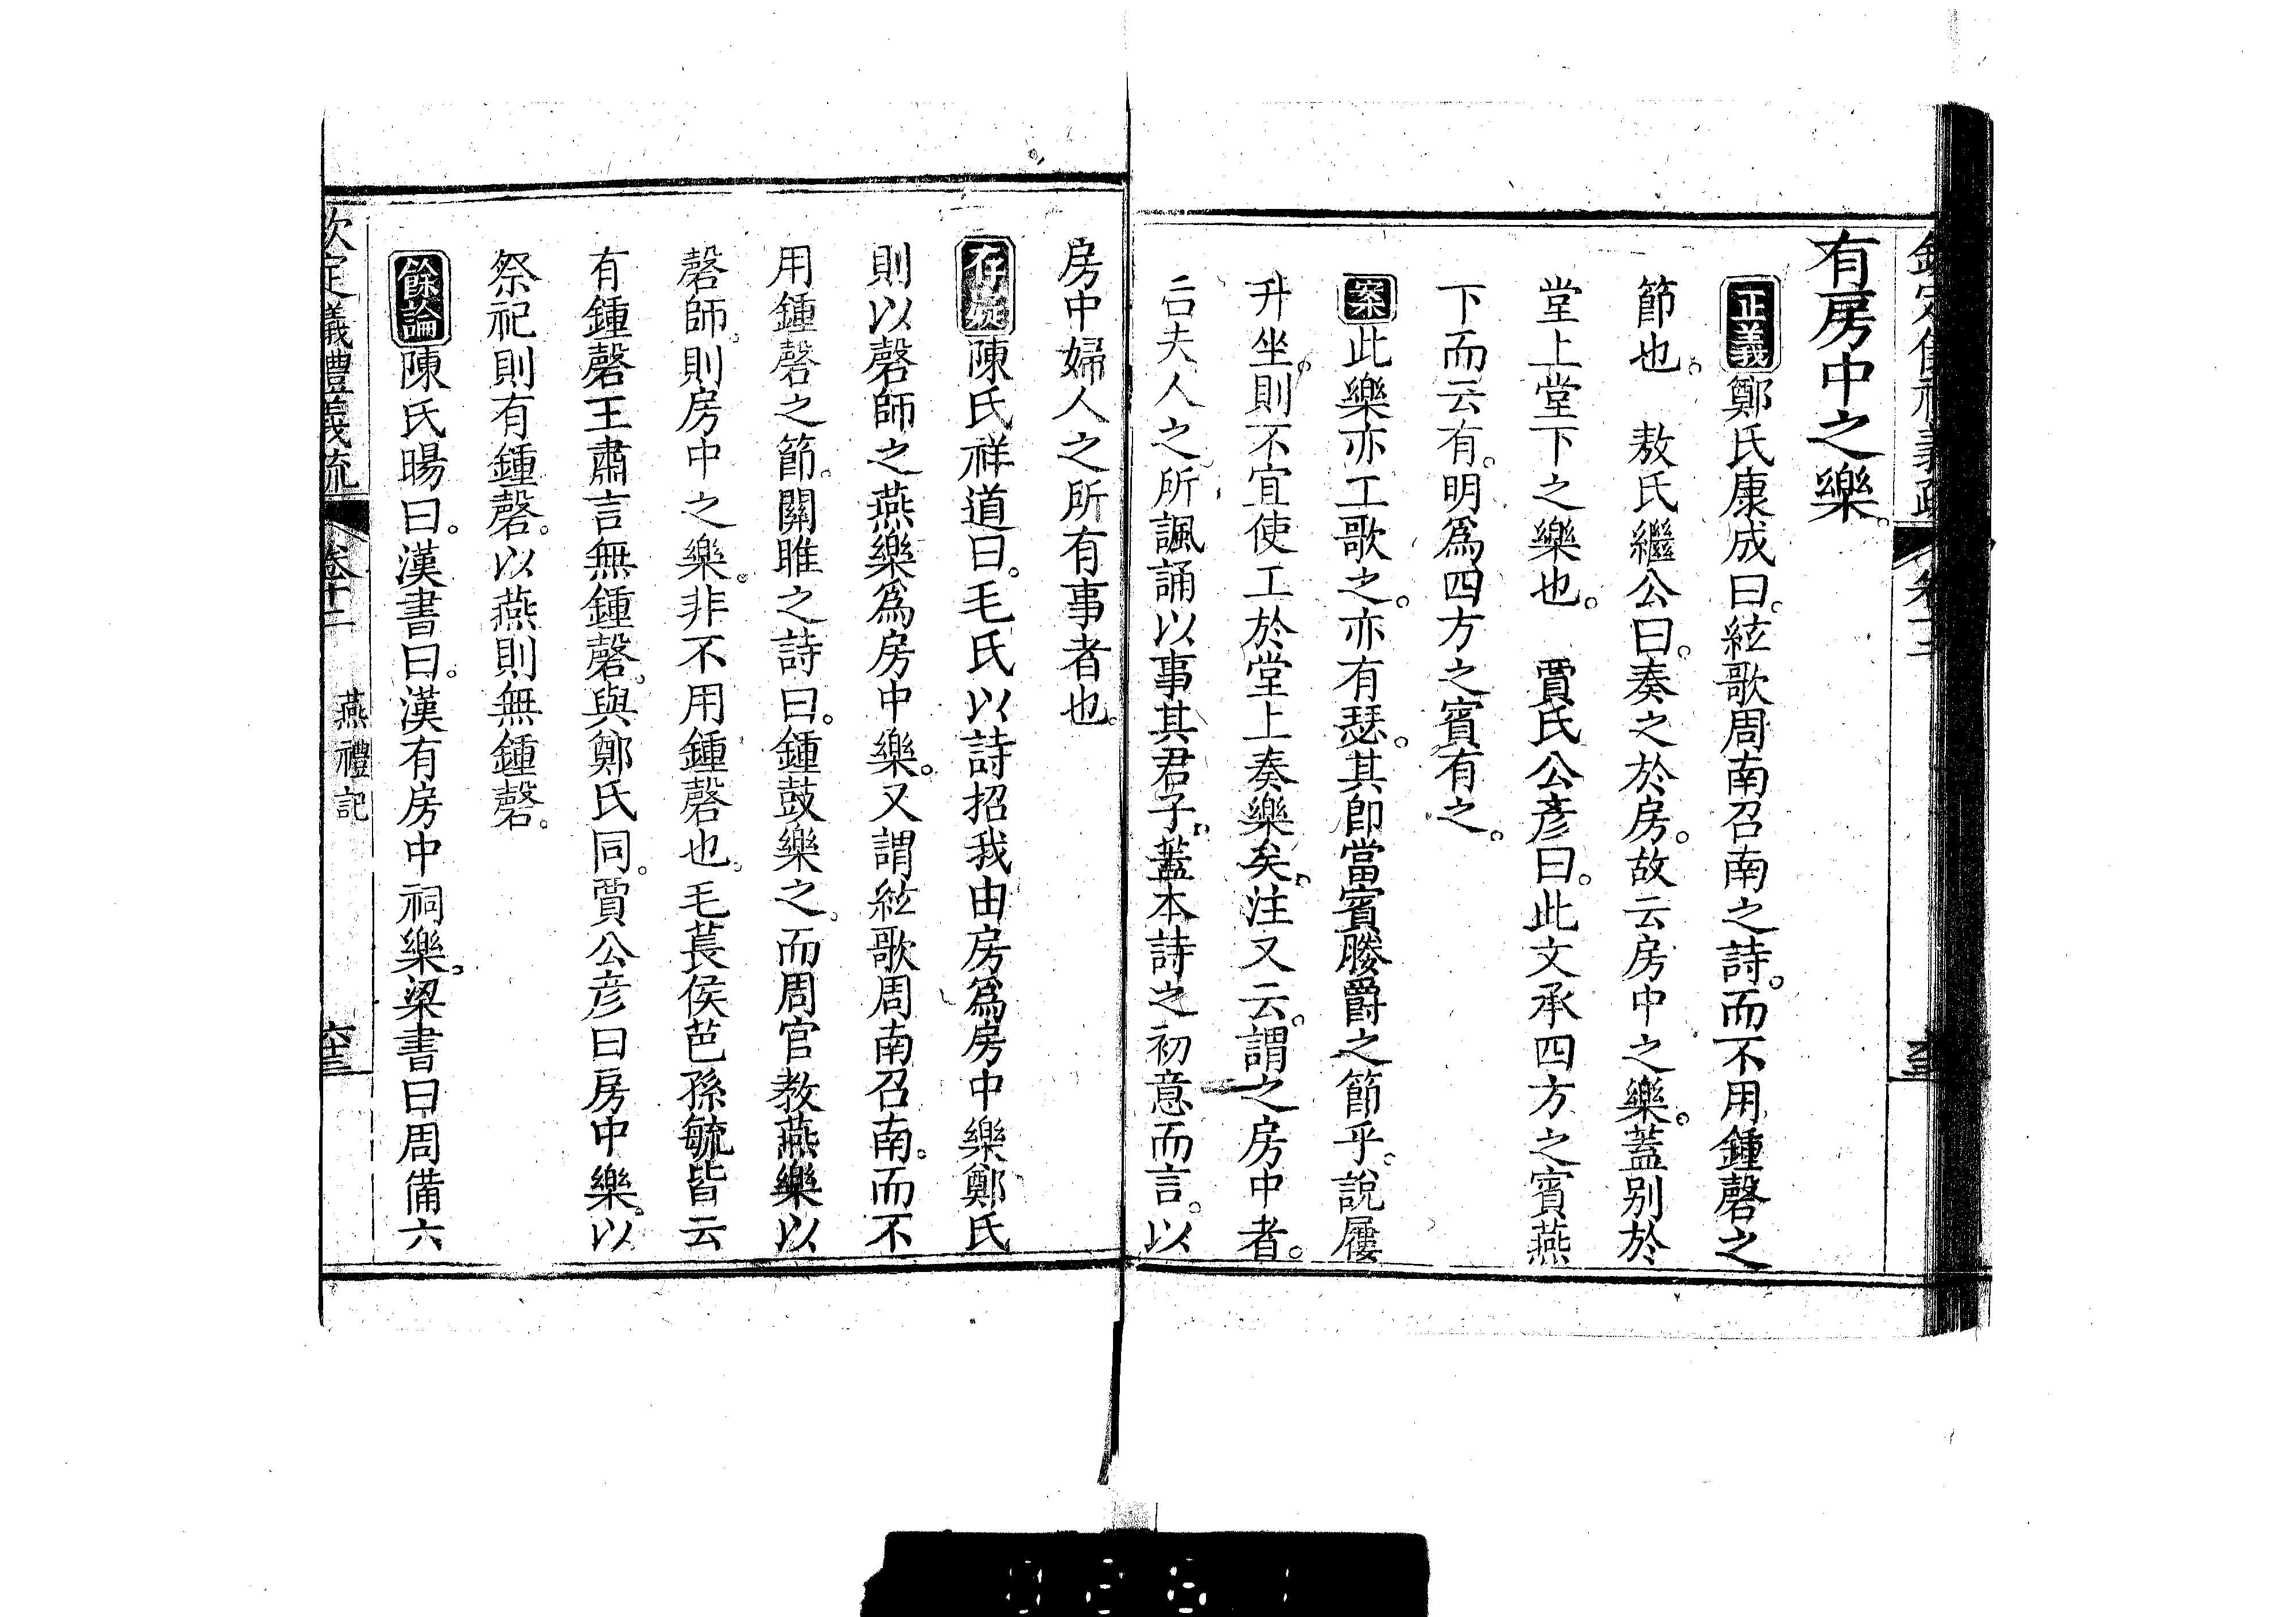 有房中之樂。
正義鄭氏康成曰。絃歌周南召南之詩。而不用鍾磬之
節也。　敖氏繼公曰。奏之於房。故云房中之樂。蓋别於
堂上堂下之樂也。　賈氏公彥曰。此文承四方之賓燕
下而云有。明爲四方之賓有之。
案此樂亦工歌之。亦有瑟。其卽當賓媵爵之節乎。說屨
升坐。則不宜使工於堂上奏樂矣。注又云。謂之房中者。
后夫人之所諷誦以事其君子。蓋本詩之初意而言。以
房中婦人之所有事者也。
存疑陳氏祥道曰。毛氏以詩招我由房爲房中樂鄭氏
則以磬師之燕樂爲房中樂。又謂絃歌周南召南。而不
用鍾磬之節。關雎之詩曰。鍾鼓樂之。而周官教燕樂以
磬師。則房中之樂。非不用鍾磬也。毛萇侯芭孫毓皆云
有鍾磬王肅言無鍾磬。與鄭氏同。賈公彦曰房中樂。以
祭祀則有鍾磬。以燕則無鍾磬。
餘論陳氏暘曰。漢書曰。漢有房中祠樂。梁書曰周備六
欽定義禮義疏　卷十二　燕禮記　六十三